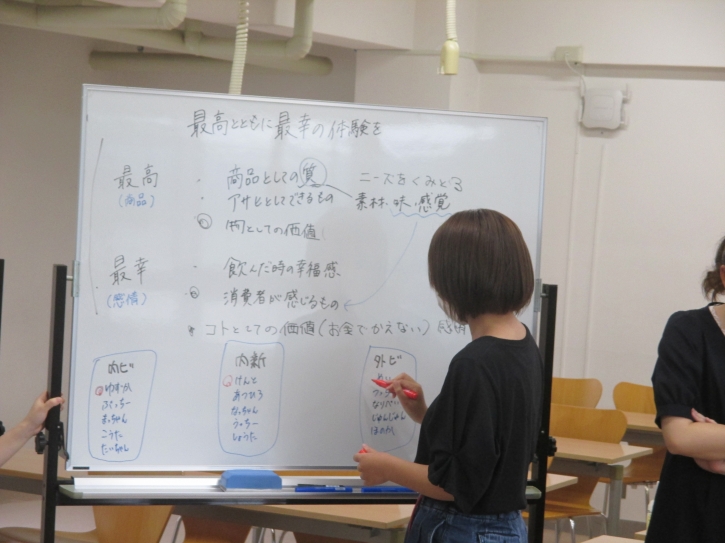 最高とともに最幸の体験を
最高 ・ 商品としての質 ニーズをくみとる
(商品) ・ アサヒとしてできるもの 素材・味・感覚
物としての価値
最幸 ・ 飲んだ時の幸福感
(感情) 消費者が感じるもの
コトとしての価値(お金でかえない)
内ビ
ゆずか
ふくっちー
まっちゃん
こうた
たいちゃん
内新
けんと
あつひろ
なっちゃん
うっちー
しょうた
外ビ
じゅんじゅん
ほのか